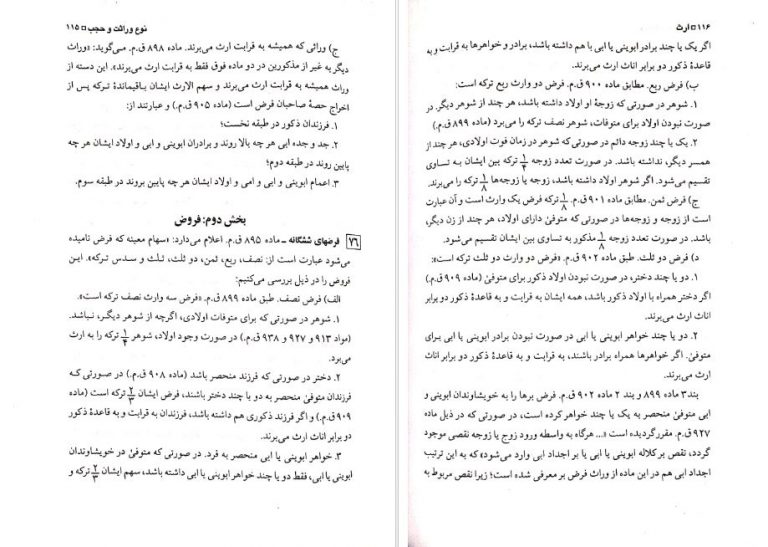 نوع وراثت و حجب □ ۱۱۵
ج) وراثی که همیشه به قرابت ارث می‌برند. ماده ۸۹۸ ق.م. می‌گوید: «وراث
دیگر به غیر از مذکورین در دو ماده فوق فقط به قرابت ارث می‌برند». این دسته از
وراث همیشه به قرابت ارث می‌برند و سهم الارث ایشان باقیماندهٔ ترکه پس از
اخراج حصهٔ صاحبان فرض است (ماده ۹۰۵ ق.م.) و عبارتند از:
۱. فرزندان ذکور در طبقه نخست؛
۲. جد و جده ابی هر چه بالا روند و برادران ابوینی و ابی و اولاد ایشان هر چه
پایین روند در طبقه دوم؛
۳. اعمام ابوینی و ابی و امی و اولاد ایشان هر چه پایین بروند در طبقه سوم.
بخش دوم: فروض
۷۶ فرضهای ششگانه ـ ماده ۸۹۵ ق.م. اعلام می‌دارد: «سهام معینه که فرض نامیده
می‌شود عبارت است از: نصف، ربع، ثمن، دو ثلث، ثلث و سدس ترکه». این
فروض را در ذیل بررسی می‌کنیم:
الف) فرض نصف. طبق ماده ۸۹۹ ق.م. «فرض سه وارث نصف ترکه است».
۱. شوهر در صورتی که برای متوفات اولادی، اگرچه از شوهر دیگر، نباشد.
(مواد ۹۱۳ و ۹۲۷ و ۹۳۸ ق.م.) در صورت وجود اولاد، شوهر ۱/۴ ترکه را به ارث
می‌برد.
۲. دختر در صورتی که فرزند منحصر باشد (ماده ۹۰۸ ق.م.) در صورتی که
فرزندان متوفیٰ منحصر به دو یا چند دختر باشند، فرض ایشان ۲/۳ ترکه است (ماده
۹۰۹ ق.م.) و اگر فرزند ذکوری هم داشته باشد، فرزندان به قرابت و به قاعدهٔ ذکور
دو برابر اناث ارث می‌برند.
۳. خواهر ابوینی یا ابی منحصر به فرد. در صورتی که متوفیٰ در خویشاوندان
ابوینی یا ابی، فقط دو یا چند خواهر ابوینی یا ابی داشته باشد، سهم ایشان ۲/۳ ترکه و
۱۱۶ □ ارث
اگر یک یا چند برادر ابوینی یا ابی با هم داشته باشد، برادر و خواهرها به قرابت و به
قاعدهٔ ذکور دو برابر اناث ارث می‌برند.
ب) فرض ربع. مطابق ماده ۹۰۰ ق.م. فرض دو وارث ربع ترکه است:
۱. شوهر در صورتی که زوجهٔ او اولاد داشته باشد، هر چند از شوهر دیگر. در
صورت نبودن اولاد برای متوفات، شوهر نصف ترکه را می‌برد (ماده ۸۹۹ ق.م.)
۲. یک یا چند زوجه دائم در صورتی که شوهر در زمان فوت اولادی، هر چند از
همسر دیگر، نداشته باشد. در صورت تعدد زوجه ۱/۴ ترکه بین ایشان به تساوی
تقسیم می‌شود. اگر شوهر اولاد داشته باشد، زوجه یا زوجه‌ها ۱/۸ ترکه را می‌برند.
ج) فرض ثمن. مطابق ماده ۹۰۱ ق.م. ۱/۸ ترکه فرض یک وارث است و آن عبارت
است از زوجه و زوجه‌ها در صورتی که متوفیٰ دارای اولاد، هر چند از زن دیگر،
باشد. در صورت تعدد زوجه ۱/۸ مذکور به تساوی بین ایشان تقسیم می‌شود.
د) فرض دو ثلث. طبق ماده ۹۰۲ ق.م. «فرض دو وارث دو ثلث ترکه است»:
۱. دو یا چند دختر، در صورت نبودن اولاد ذکور برای متوفیٰ (ماده ۹۰۹ ق.م.)
اگر دختر همراه با اولاد ذکور باشد، همه ایشان به قرابت و به قاعدهٔ ذکور دو برابر
اناث ارث می‌برند.
۲. دو یا چند خواهر ابوینی یا ابی در صورت نبودن برادر ابوینی یا ابی برای
متوفیٰ. اگر خواهرها همراه برادر باشند، به قرابت و به قاعدهٔ ذکور دو برابر اناث
ارث می‌برند.
بند ۳ ماده ۸۹۹ و بند ۲ ماده ۹۰۲ ق.م. فرض برها را به خویشاوندان ابوینی و
ابی متوفیٰ منحصر به یک یا چند خواهر کرده است، در صورتی که در ذیل ماده
۹۲۷ ق.م. مقرر گردیده است «... هرگاه به واسطه ورود زوج یا زوجه نقصی موجود
گردد، نقص بر کلاله ابوینی یا ابی یا بر اجداد ابی وارد می‌شود» که به این ترتیب
اجداد ابی هم در این ماده از وراث فرض بر معرفی شده است؛ زیرا نقص مربوط به